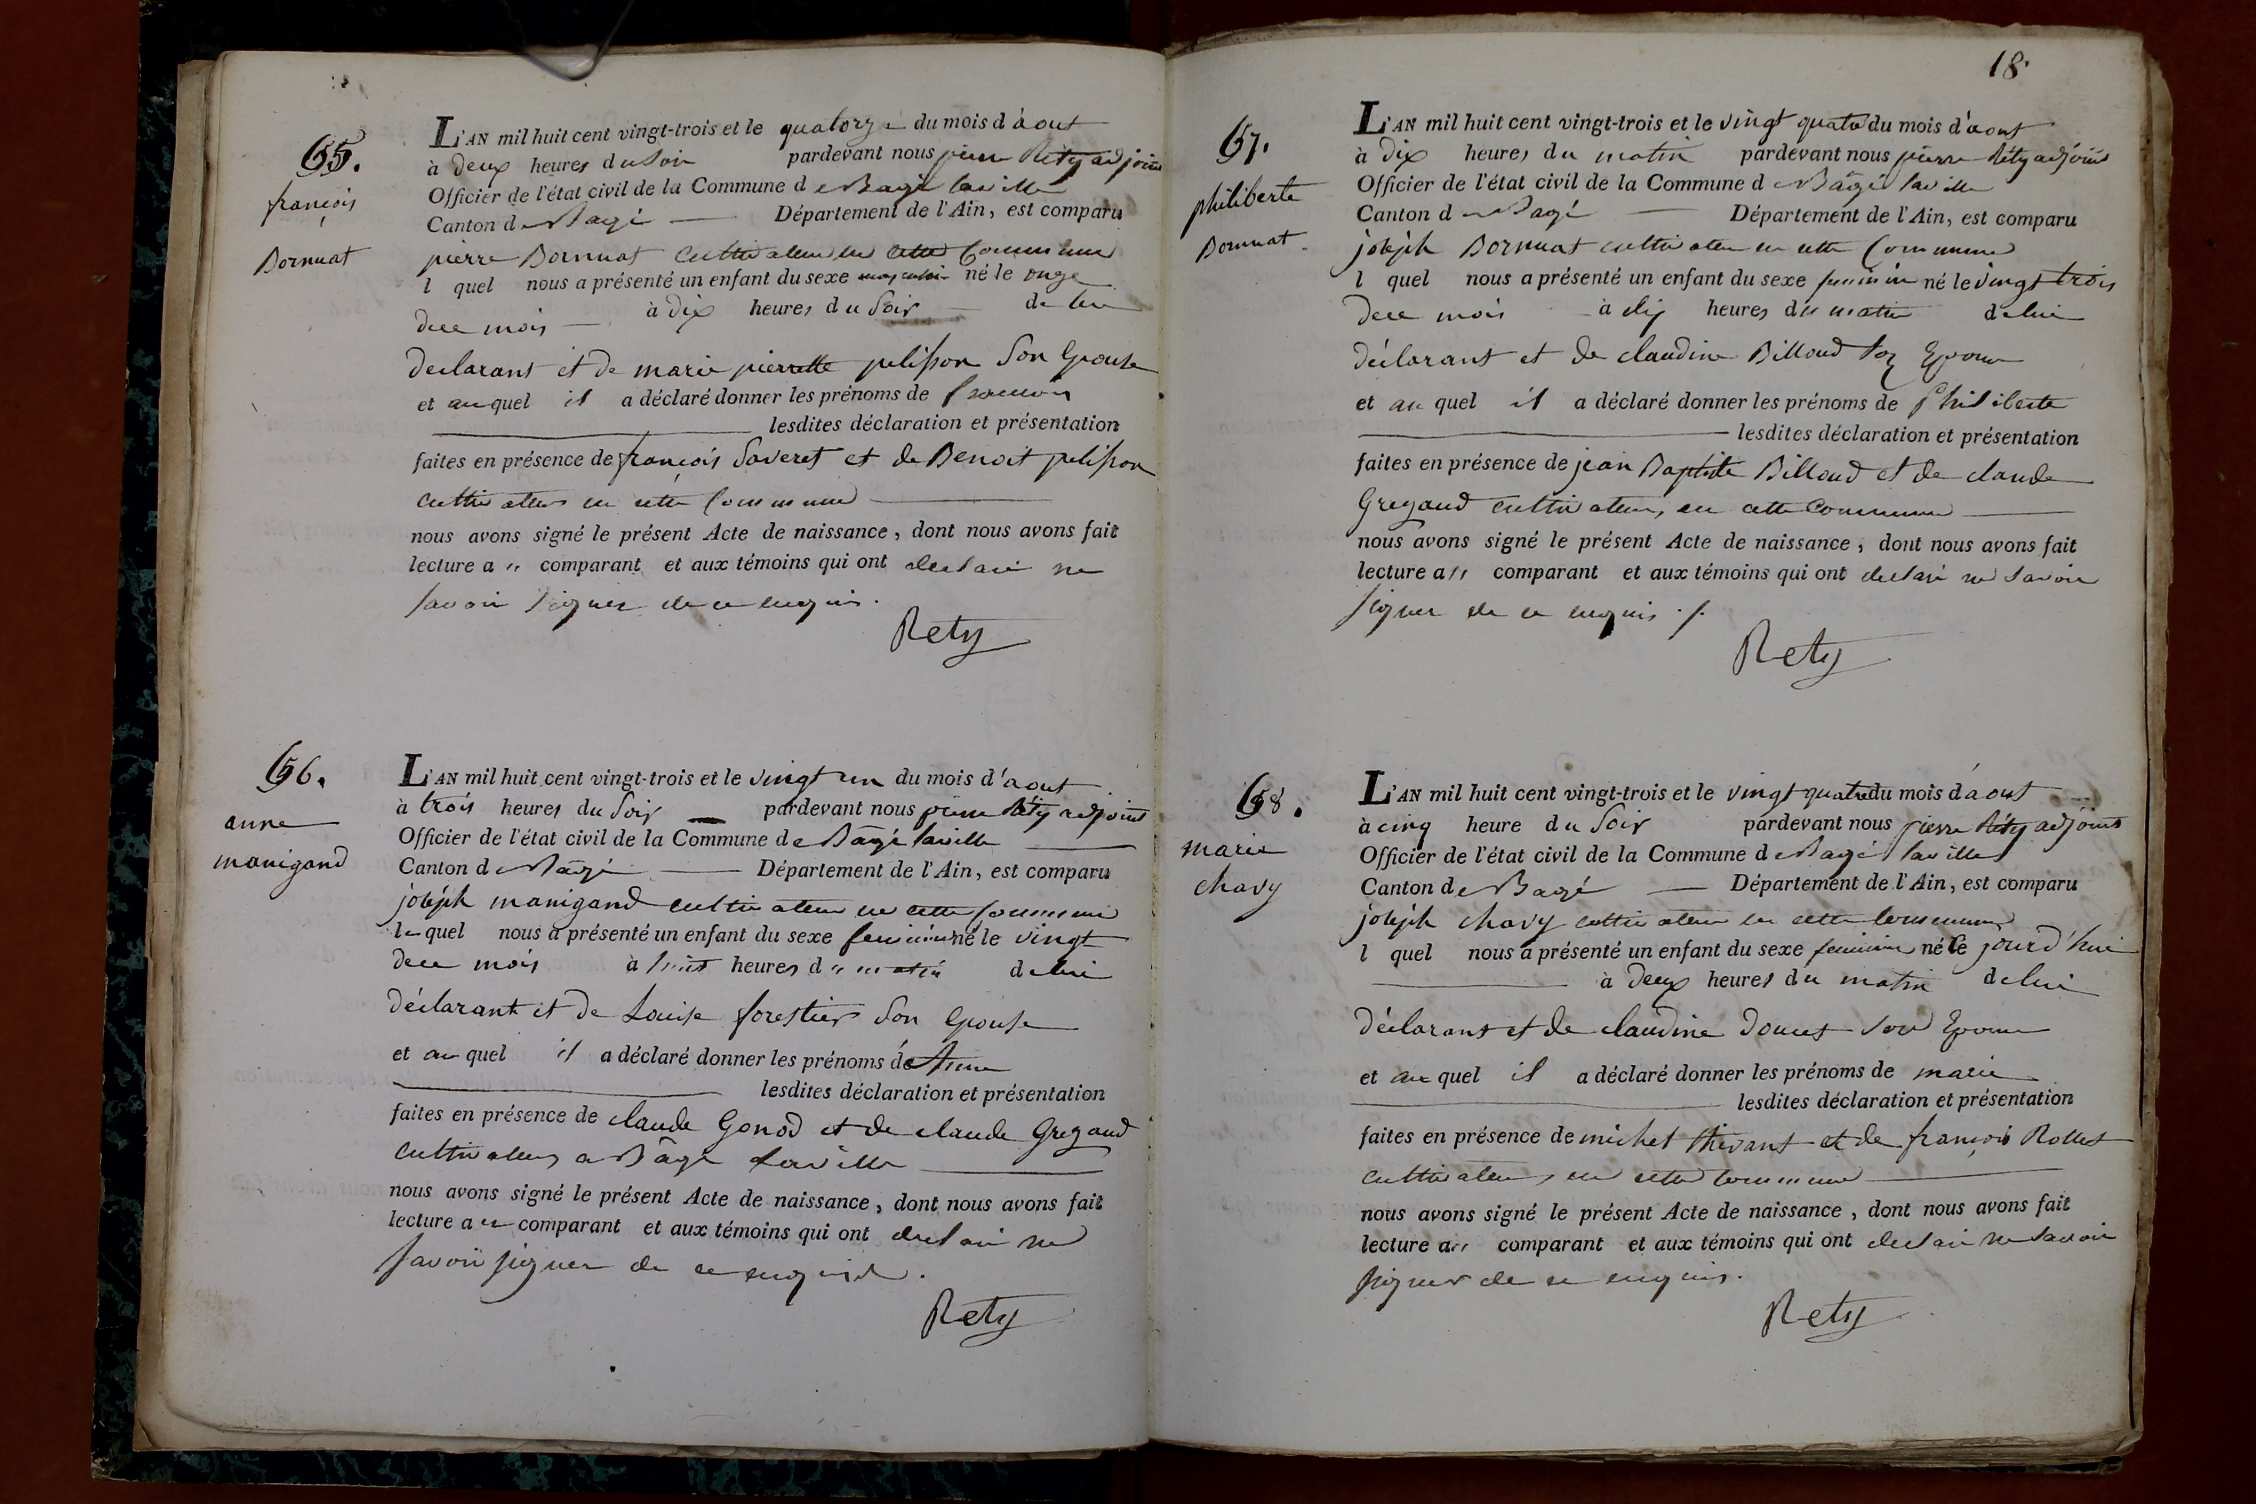 65.
françois
Bornuat
L'AN mil huit cent vingt-trois et le quatorze du mois d'aout
à deux heures du soir pardevant nous pierre Réty adjoint
Officier de l'état civil de la Commune de Bagé laville
Canton de Bagé — Département de l'Ain, est comparu
pierre Bornuat cultivateur en cette Commune
l quel nous a présenté un enfant du sexe masculin né le onze
de ce mois — à dix heures du soir — de lui
declarant et de marie pierrette pelisson son Epouse
et auquel il a déclaré donner les prénoms de françois
lesdites déclaration et présentation
faites en présence de françois Saveret et de Benoit pelisson
cultivateurs en cette Commune
nous avons signé le présent Acte de naissance, dont nous avons fait
lecture au comparant et aux témoins qui ont declaré ne
savoir signer de ce enquis.
Rety
66.
anne
manigand
L'AN mil huit cent vingt-trois et le vingt un du mois d'aout
à trois heures du soir — pardevant nous pierre Réty adjoint
Officier de l'état civil de la Commune de Bâgé laville
Canton de Bâgé — Département de l'Ain, est comparu
joseph manigand cultivateur en cette Commune
le quel nous a présenté un enfant du sexe feminin né le vingt
de ce mois à huit heures du matin de lui
déclarant et de Louise forestier son Epouse
et au quel il a déclaré donner les prénoms de Anne
lesdites déclaration et présentation
faites en présence de claude Gonod et de claude Gregaud
cultivateurs a Bâgé laville
nous avons signé le présent Acte de naissance, dont nous avons fait
lecture au comparant et aux témoins qui ont declaré ne
savoir signer de ce enquis.
Rety
18.
67.
philiberte
Bornuat.
L'AN mil huit cent vingt-trois et le vingt quatre du mois d'aout
à dix heures du matin pardevant nous pierre Réty adjoint
Officier de l'état civil de la Commune de Bâgé laville
Canton de Bagé — Département de l'Ain, est comparu
joseph Bornuat cultivateur en cette Commune
l quel nous a présenté un enfant du sexe feminin né le vingt trois
de ce mois à dix heures du matin de lui
déclarant et de claudine Billoud son Epouse
et au quel il a déclaré donner les prénoms de Philiberte
lesdites déclaration et présentation
faites en présence de jean Baptiste Billoud et de claude
Gregaud cultivateurs en cette Commune
nous avons signé le présent Acte de naissance, dont nous avons fait
lecture au comparant et aux témoins qui ont declaré ne savoir
signer de ce enquis ./.
Rety
68.
marie
chavy
L'AN mil huit cent vingt-trois et le vingt quatre du mois d'aout
à cinq heure du soir pardevant nous pierre Réty adjoint
Officier de l'état civil de la Commune de Bagé laville
Canton de Bagé — Département de l'Ain, est comparu
joseph chavy cultivateur en cette Commune
l quel nous a présenté un enfant du sexe feminin né le jourd'hui
à deux heures du matin de lui
déclarant et de claudine Doucet son Epouse
et au quel il a déclaré donner les prénoms de marie
lesdites déclaration et présentation
faites en présence de michel thivant et de françois Rollet
cultivateurs en cette Commune
nous avons signé le présent Acte de naissance, dont nous avons fait
lecture au comparant et aux témoins qui ont declaré ne savoir
signer de ce enquis.
Rety